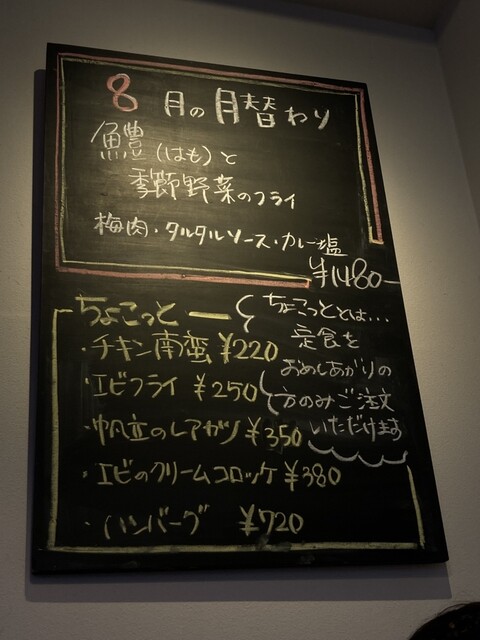 8月の月替わり
鱧(はも)と
季節野菜のフライ
梅肉・タルタルソース・カレー塩
¥1480-
ちょこっと
・チキン南蛮 ¥220
・エビフライ ¥250
・帆立のレアカツ ¥350
・エビのクリームコロッケ ¥380
・ハンバーグ ¥720
ちょこっととは...
定食を
おめしあがりの
方のみご注文
いただけます